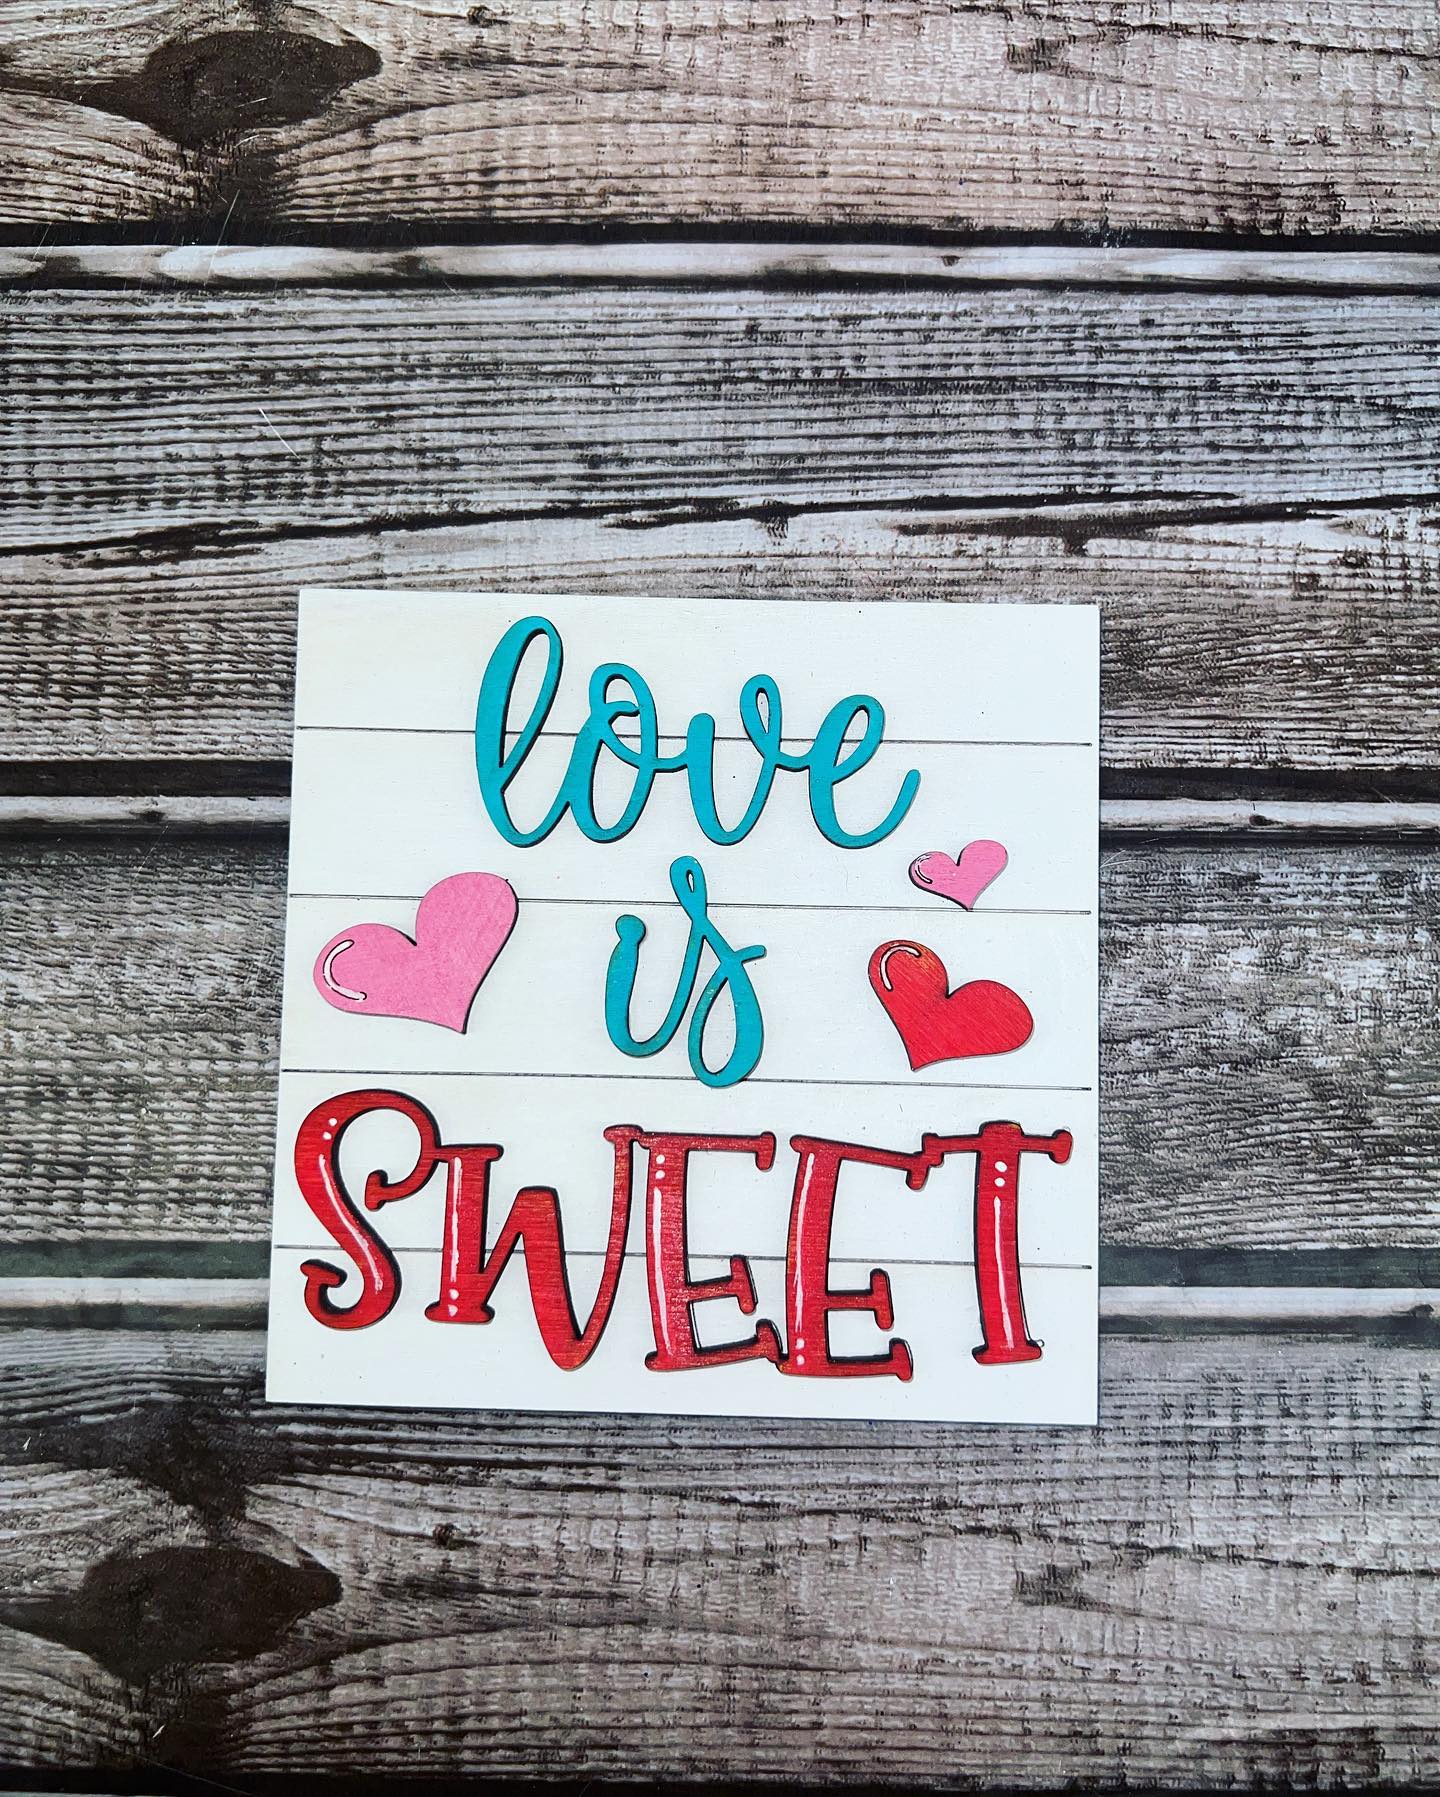 love
is
SWEET